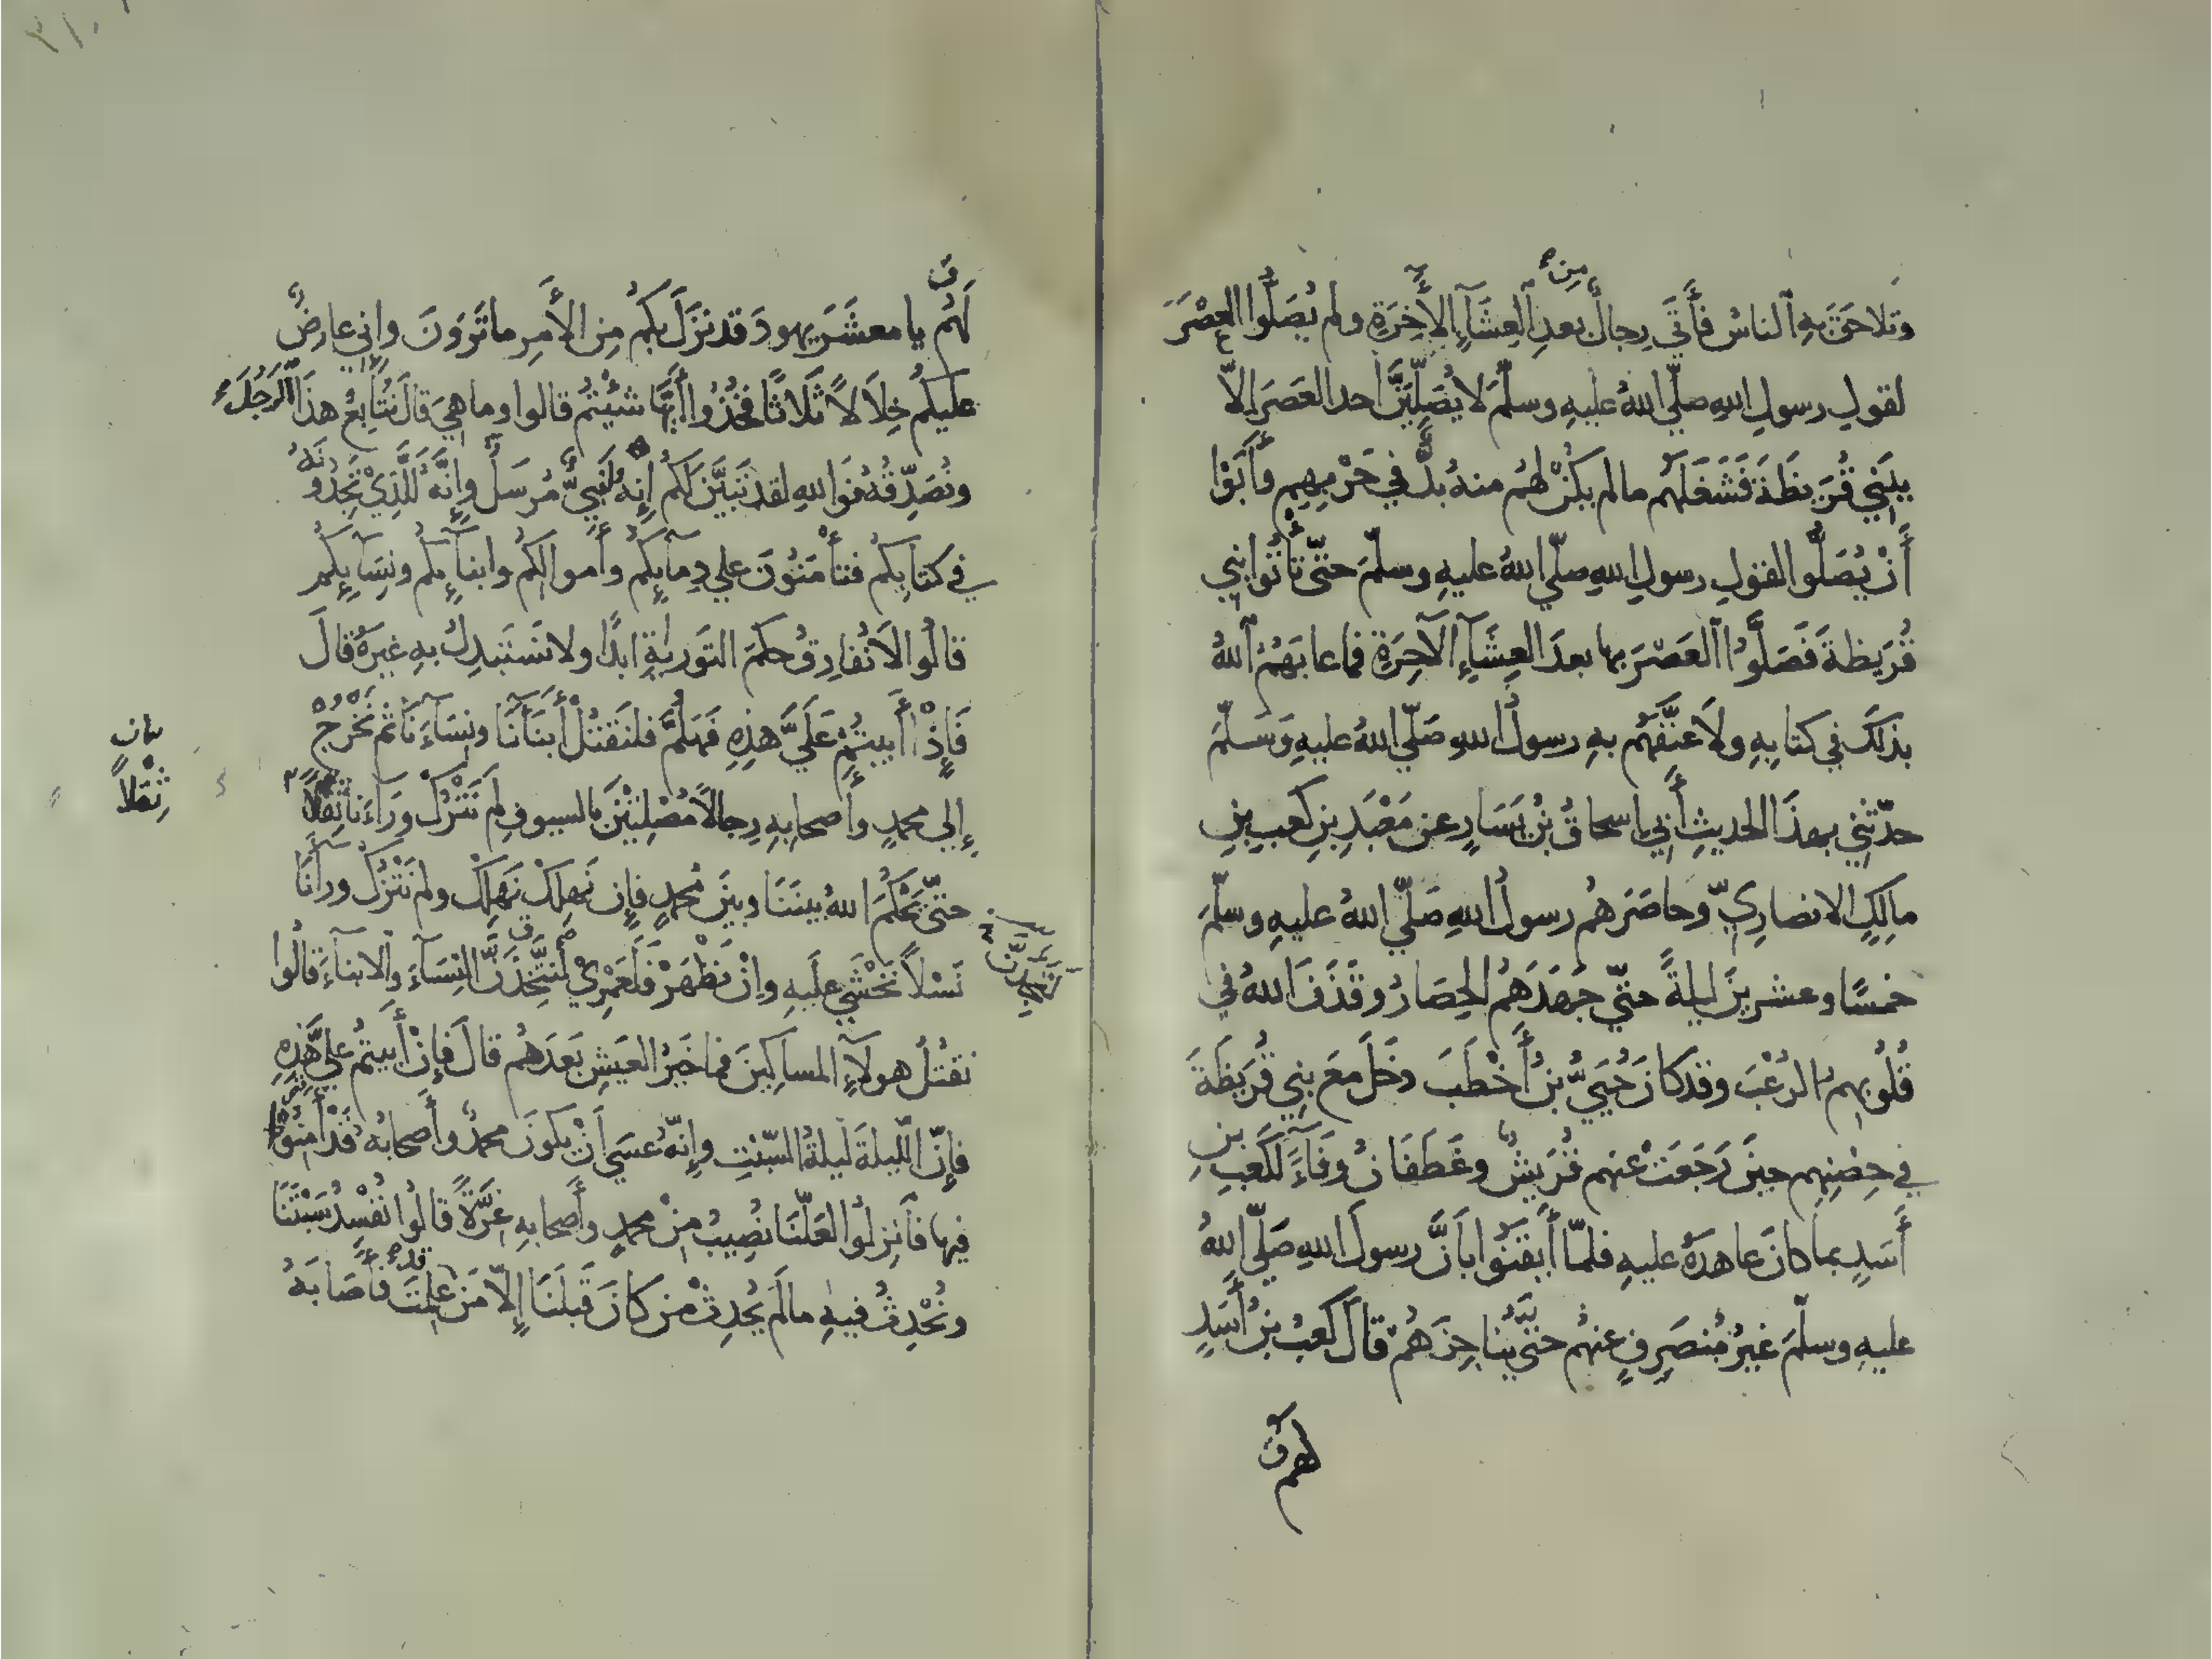 وتَلاحَقَ بِهِ ٱلناسُ فَأَتَى رِجالٌ بعدِ ٱلعِشَآءِ الأَخِرَةِ ولم يُصَلُّوا العَصْرَ
مِن
لقولِ رسولِ اللهِ صلّى اللهُ عليهِ وسلّمَ لا يُصَلِّيَنَّ احد العَصَرَ الاّ
ببَنِي قُرَيظَةَ فَشَغَلَهُم مالم يكنْ لهُم منهُ بدٌّ في حَرْبِهِم وأَبَوْا
أَنْ يُصَلُّوا لقولِ رسولِ اللهِ صلّى اللهُ عليهِ وسلّمَ حتّى تأْتُوا بني
قُرَيظةَ فَصَلَّوُا ٱلعَصْرَ بها بعدَ العِشَآءِ الآخِرَةِ فما عابَهُمُ ٱللهُ
بذلكَ في كتابِهِ ولَا عَنَّفَهُم بهِ رسولُ اللهِ صَلّى اللهُ عليهِ وَسَلّمَ
حدّثني بهذَا الحديثِ أَبي اسحاقُ بْنُ يَسَارٍ عن مَعْبَدِ بنِ كَعبِ بنِ
مالِكٍ الانصارِيِّ وحاصَرَهُم رسولُ اللهِ صَلّى اللهُ عليهِ وسلّمَ
خمسًا وعشرينَ ليلةً حتّى جَهَدَهُم الحِصَارُ وقَذَفَ اللهُ في
قُلُوبِهِم الرُعْبَ وقد كانَ حُيَيُّ بنُ أَخْطَبَ دخَلَ معَ بنِي قُرَيظَةَ
في حِصْنِهِم حينَ رَجَعَتْ عنهم قُرَيشٌ وغَطَفَانُ وفَآءً لكَعبِ بنِ
أَسَدٍ بما كانَ عاهدَهُ عليهِ فلمّا أَيقَنُوا بأَنَّ رسولَ اللهِ صَلّى اللهُ
عليهِ وسلّمَ غيرُ مُنصَرِفٍ عنهُم حتّى يُناجِزَهُم قالَ كَعبُ بنُ أَسَدٍ
لهم
لَهُم يا معشَرَ يهودَ قد نزَلَ بكُم مِن الأَمرِ ما تَرَوْنَ وإنى عارضٌ
عليكُم خِلَالًا ثَلَاثًا فخُذُوا أَيَّها شئْتُم قالوا وما هيَ قالَ نُتَابِعُ هذَا ٱلرَجُلَ
ونُصَدِّقُهُ فوَ اللهِ لقد تبَيَّنَ لكُم إنه لَنَبِيٌّ مُرسَلٌ وإنَّهُ لَلَّذِيْ تَجِدُونَهُ
في كتابِكُم فتأْمَنُونَ علي دِمآئِكُم وأَموالِكُم وابنآئِكُم ونِسَآئِكُم
قالُوا لَا نُفارِقُ حكمَ التَورٰيةِ ابدًا ولا نَستَبدِلُ بهِ غيرَهُ قالَ
فَإِذْا أَبيتُمْ عَلَيَّ هذِهِ فَهَلُمَّ فلنَقتُلْ أَبنَآنَا ونِسَآءَنَا ثم نَخْرُجْ
إلي محمدٍ وأَصحابِهِ رِجالًا مُصْلِتِيْنَ بالسيوفِ لم نَتْرُكْ وَرَآءَنَا ثِقَلًا
ثِقَلًا
حتّى يَحْكُمَ اللهُ بينَنَا وبينَ محمدٍ فإن نَهلِكْ نَهلِكْ ولم نَتْرُكْ ورآنَا
نَسْلًا نَخْشَي علَيهِ وإنْ نَظْهَرْ فَلَعَمْرِيْ لنَتَّخِذَنَّ النِسَآءَ والابنآءَ قالُوا
لَنَجِدَنَّ
نقتُلُ هولآءِ المساكِينَ فما خَيرُ العَيشِ بَعدَهُم قالَ فإنْ أَبيتُم علَيَّ هَذِهِ
فإنّ اللّيلةَ لَيلةُ السّبْتِ وإنّهُ عسَي أنْ يكونَ محمدٌ وأَصحابُه قَدْ أَمِنُوْا
فيها فٱنزِلُوا لعَلّنَا نُصِيبُ مِنْ محمدٍ وأَصحابهِ غِرَّةً قالُوا نُفْسِدُ سَبْتَنَا
ونُحْدِثُ فيهِ مالَم يُحدِثْ من كانَ قَبلَنَا إلّا مَن عَلِمْتَ فأَصَابَهُ
قد